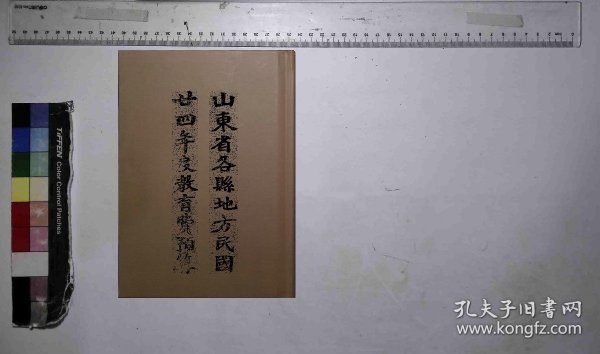 山東省各縣地方民國
廿四年度教育費預算
TIFFEN Color Control Patches
孔夫子旧书网
www.kongfz.com